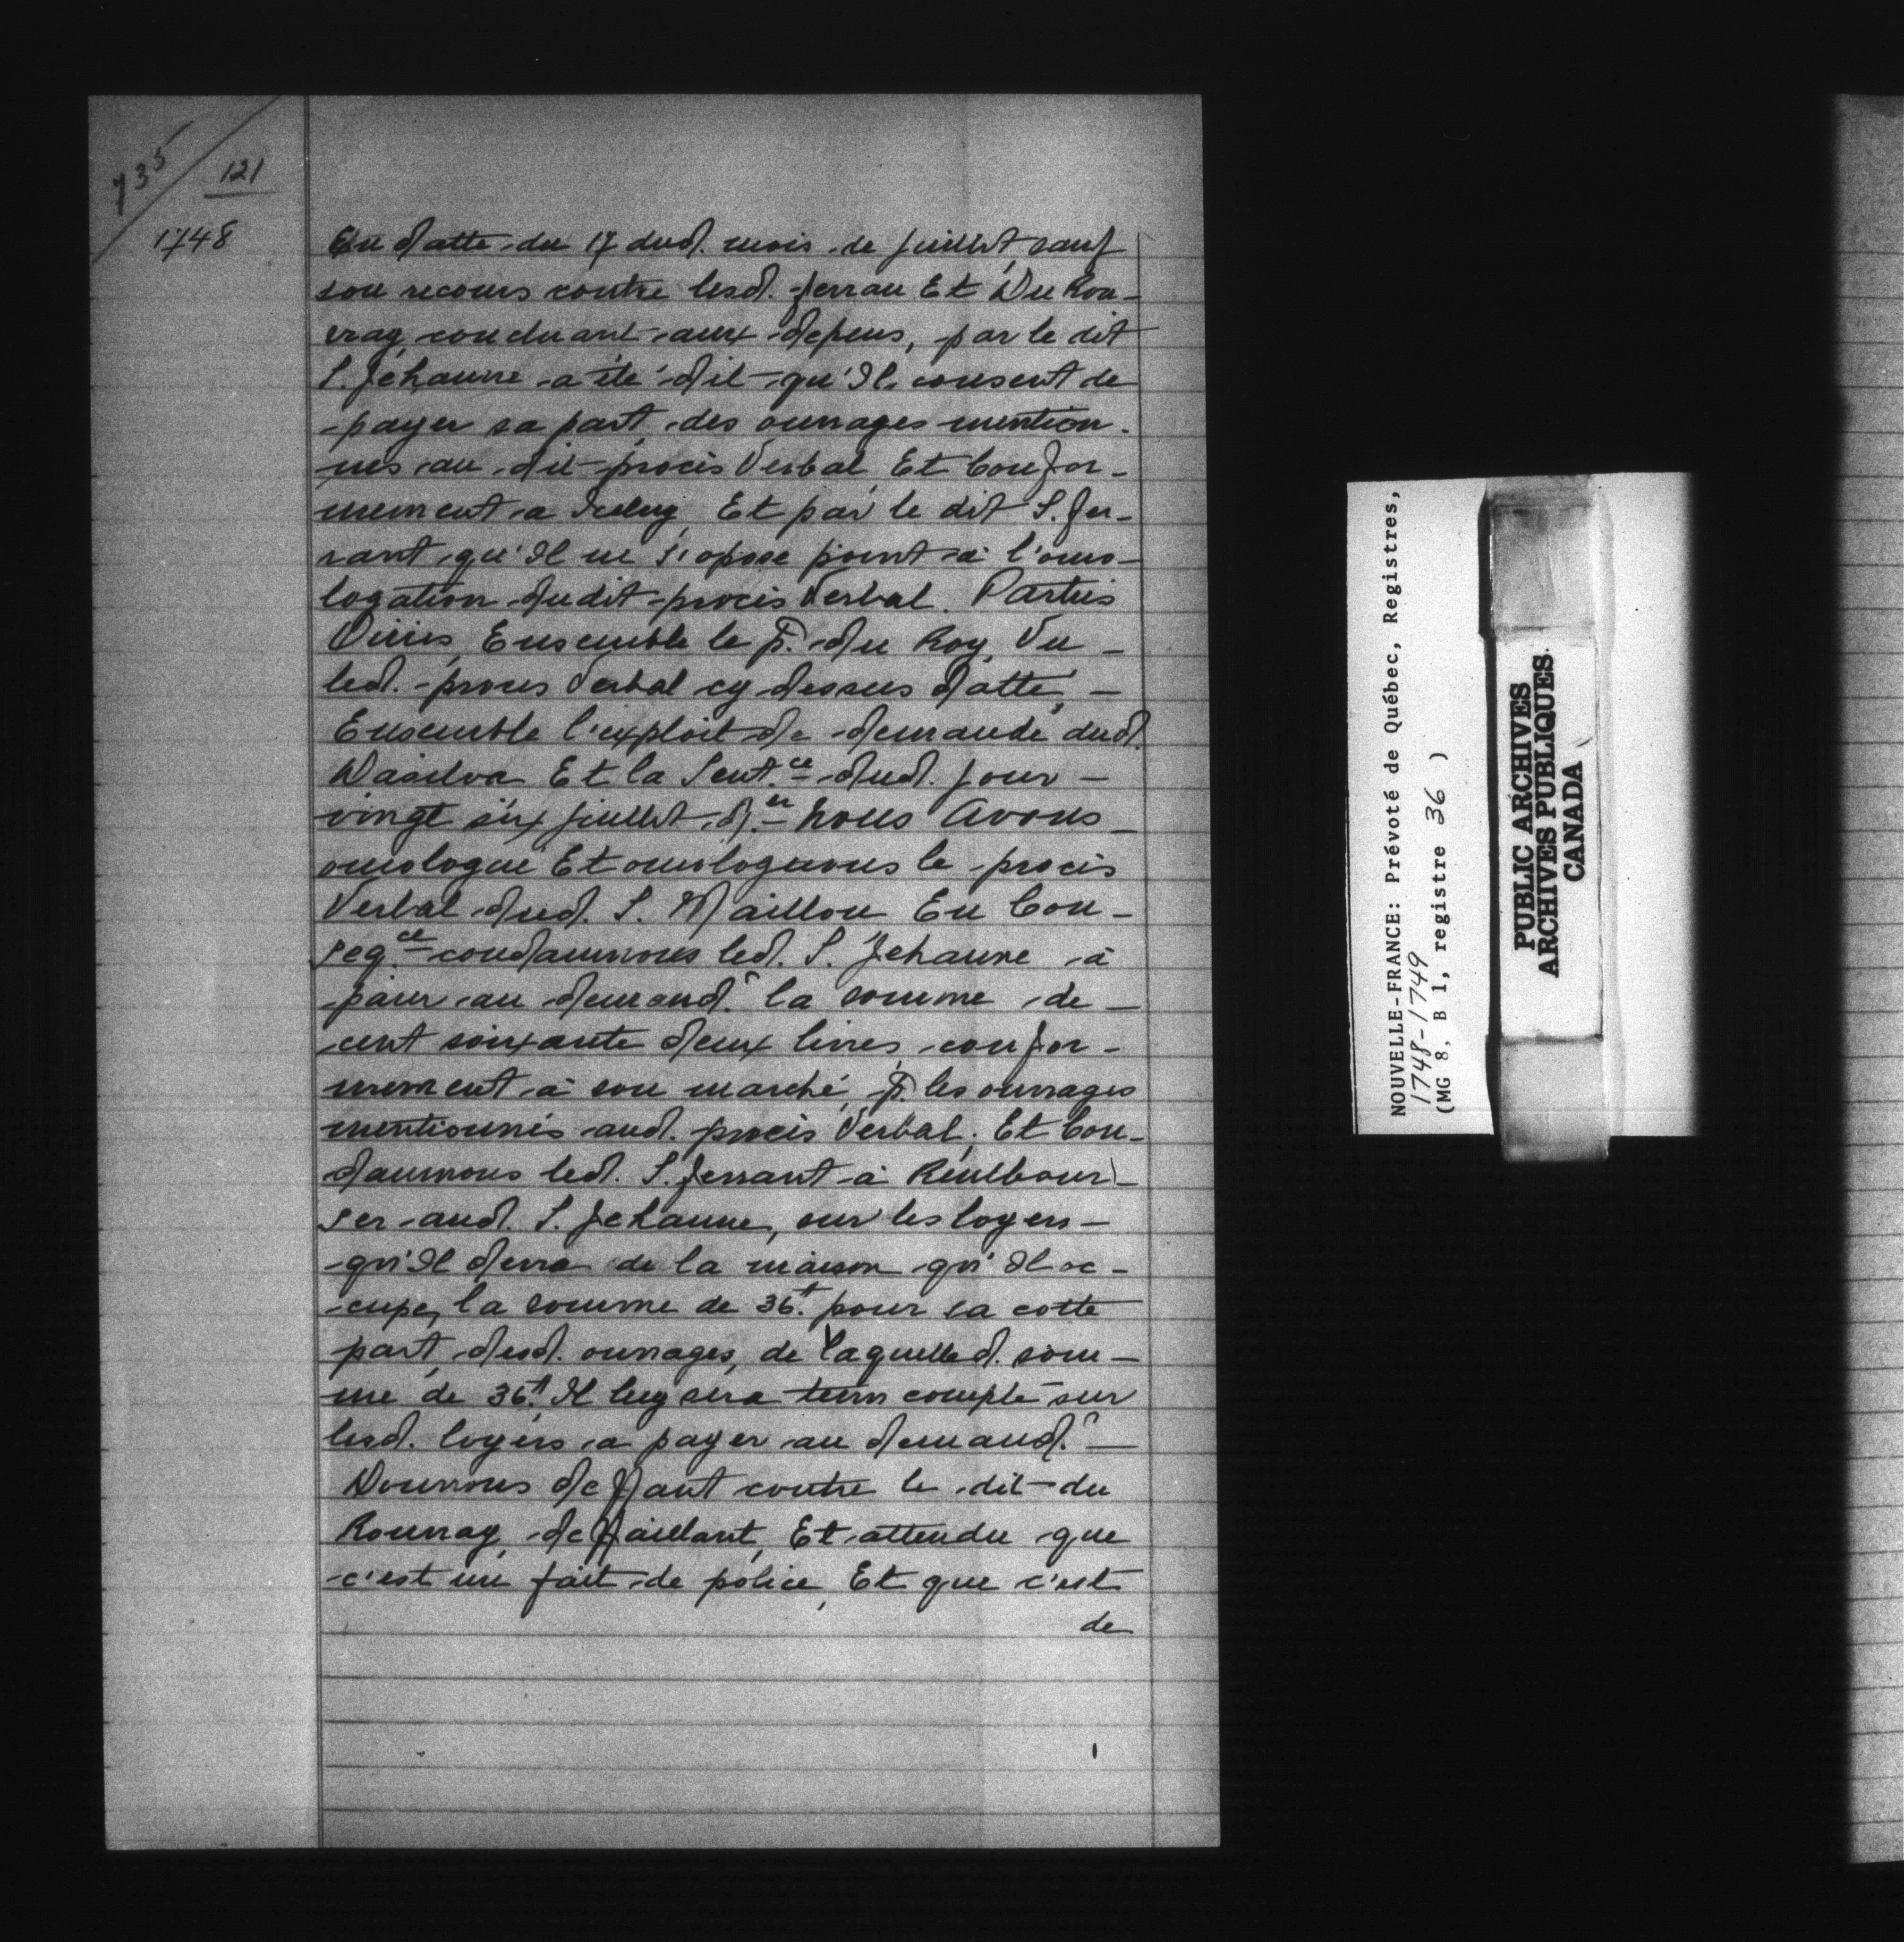 735
121
1748
En datte du 17 dud. mois de Juillet, sauf
son recours contre lesd. ferrau Et Du Rou-
vray concluant aux depens, par le dit
S. Jehanne a été dit qu'Il consent de
payer sa part des ouvrages mention-
nes au dit procès Verbal Et Confor-
mement a Iceluy Et par le dit S. fer-
rant qu'Il ne s'opose point à l'omo-
logation dudit procès Verbal. Parties
Ouies, Ensemble le P. du Roy, Vu
led. procès Verbal cy dessus datté,
Ensemble l'exploit de demande dud.
Dasilva Et la Sent.ce dud. jour
vingt six juillet d.er Nous Avons
omologué Et omologuons le procès
Verbal dud. S. Maillou En Con-
seq.ce condamnons led. S. Jehanne à
paier au demand.r la somme de
cent soixante deux livres confor-
mement à son marché, P. les ouvrages
mentionnés aud. procès Verbal. Et Con-
damnons led. S. ferrant à Rembour-
ser aud. S. Jehanne, sur les loyers
qu'Il devra de la maison qu'Il oc-
cupe, la somme de 36.# pour sa cotte
part desd. ouvrages, de laquelle d. som-
me de 36.# Il luy sera tenu compte sur
lesd. loyers a payer au demand.r
Donnons deffaut contre le dit du
Rouvray deffaillant, Et attendu que
c'est un fait de police, Et que c'est
de
NOUVELLE-FRANCE: Prévoté de Québec, Registres,
1748-1749
(MG 8, B 1, registre 36 )
PUBLIC ARCHIVES
ARCHIVES PUBLIQUES
CANADA